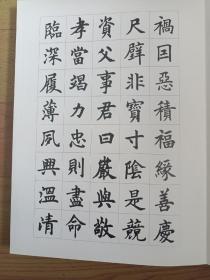 禍因惡積福緣善慶
尺璧非寶寸陰是競
資父事君曰嚴與敬
孝當竭力忠則盡命
臨深履薄夙興溫凊